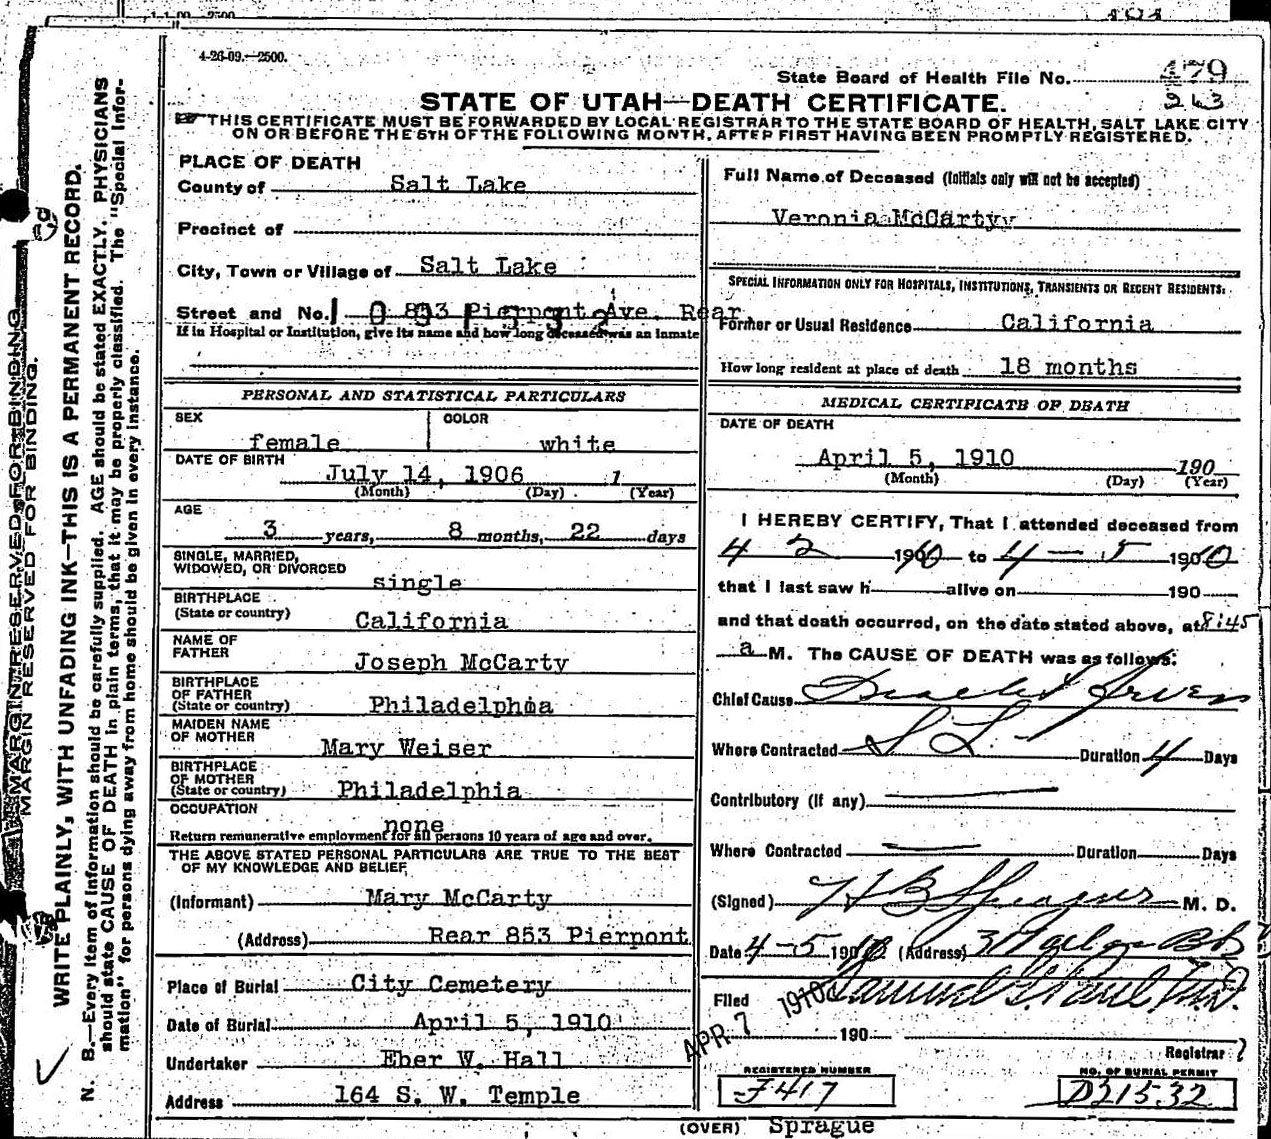 4-26-09.—2500.
State Board of Health File No. 479
263
STATE OF UTAH—DEATH CERTIFICATE.
THIS CERTIFICATE MUST BE FORWARDED BY LOCAL REGISTRAR TO THE STATE BOARD OF HEALTH, SALT LAKE CITY
ON OR BEFORE THE 5TH OF THE FOLLOWING MONTH, AFTER FIRST HAVING BEEN PROMPTLY REGISTERED.
PLACE OF DEATH
County of Salt Lake
Precinct of
City, Town or Village of Salt Lake
Street and No. 853 Pierpont Ave. Rear.
If in Hospital or Institution, give its name and how long deceased was an inmate
PERSONAL AND STATISTICAL PARTICULARS
SEX COLOR
female white
DATE OF BIRTH
July 14, 1906 1
(Month) (Day) (Year)
AGE
3 years, 8 months, 22 days
SINGLE, MARRIED,
WIDOWED, OR DIVORCED
single
BIRTHPLACE
(State or country) California
NAME OF
FATHER Joseph McCarty
BIRTHPLACE
OF FATHER
(State or country) Philadelphia
MAIDEN NAME
OF MOTHER Mary Weiser
BIRTHPLACE
OF MOTHER
(State or country) Philadelphia
OCCUPATION
none
Return remunerative employment for all persons 10 years of age and over.
THE ABOVE STATED PERSONAL PARTICULARS ARE TRUE TO THE BEST
OF MY KNOWLEDGE AND BELIEF.
(Informant) Mary McCarty
(Address) Rear 853 Pierpont
Place of Burial City Cemetery
Date of Burial April 5, 1910
Undertaker Eber W. Hall
Address 164 S. W. Temple
Full Name of Deceased (Initials only will not be accepted)
Veronia McCartyy
SPECIAL INFORMATION ONLY FOR HOSPITALS, INSTITUTIONS, TRANSIENTS OR RECENT RESIDENTS:
Former or Usual Residence California
How long resident at place of death 18 months
MEDICAL CERTIFICATE OF DEATH
DATE OF DEATH
April 5, 1910 190
(Month) (Day) (Year)
I HEREBY CERTIFY, That I attended deceased from
4 2 1910 to 4 — 5 1910
that I last saw h alive on 190
and that death occurred, on the date stated above, at 8:45
a M. The CAUSE OF DEATH was as follows:
Chief Cause Scarlet Fever
Where Contracted S L Duration 4 Days
Contributory (if any)
Where Contracted Duration Days
(Signed) H B Sprague M. D.
Date 4-5 1910 (Address)
Filed APR 7 1910 190
Registrar
REGISTERED NUMBER
F417
NO. OF BURIAL PERMIT
D21532
(OVER) Sprague
MARGIN RESERVED FOR BINDING
MARGIN RESERVED FOR BINDING.
WRITE PLAINLY, WITH UNFADING INK—THIS IS A PERMANENT RECORD.
N. B.—Every item of information should be carefully supplied. AGE should be stated EXACTLY. PHYSICIANS
should state CAUSE OF DEATH in plain terms, that it may be properly classified. The "Special Infor-
mation" for persons dying away from home should be given in every instance.